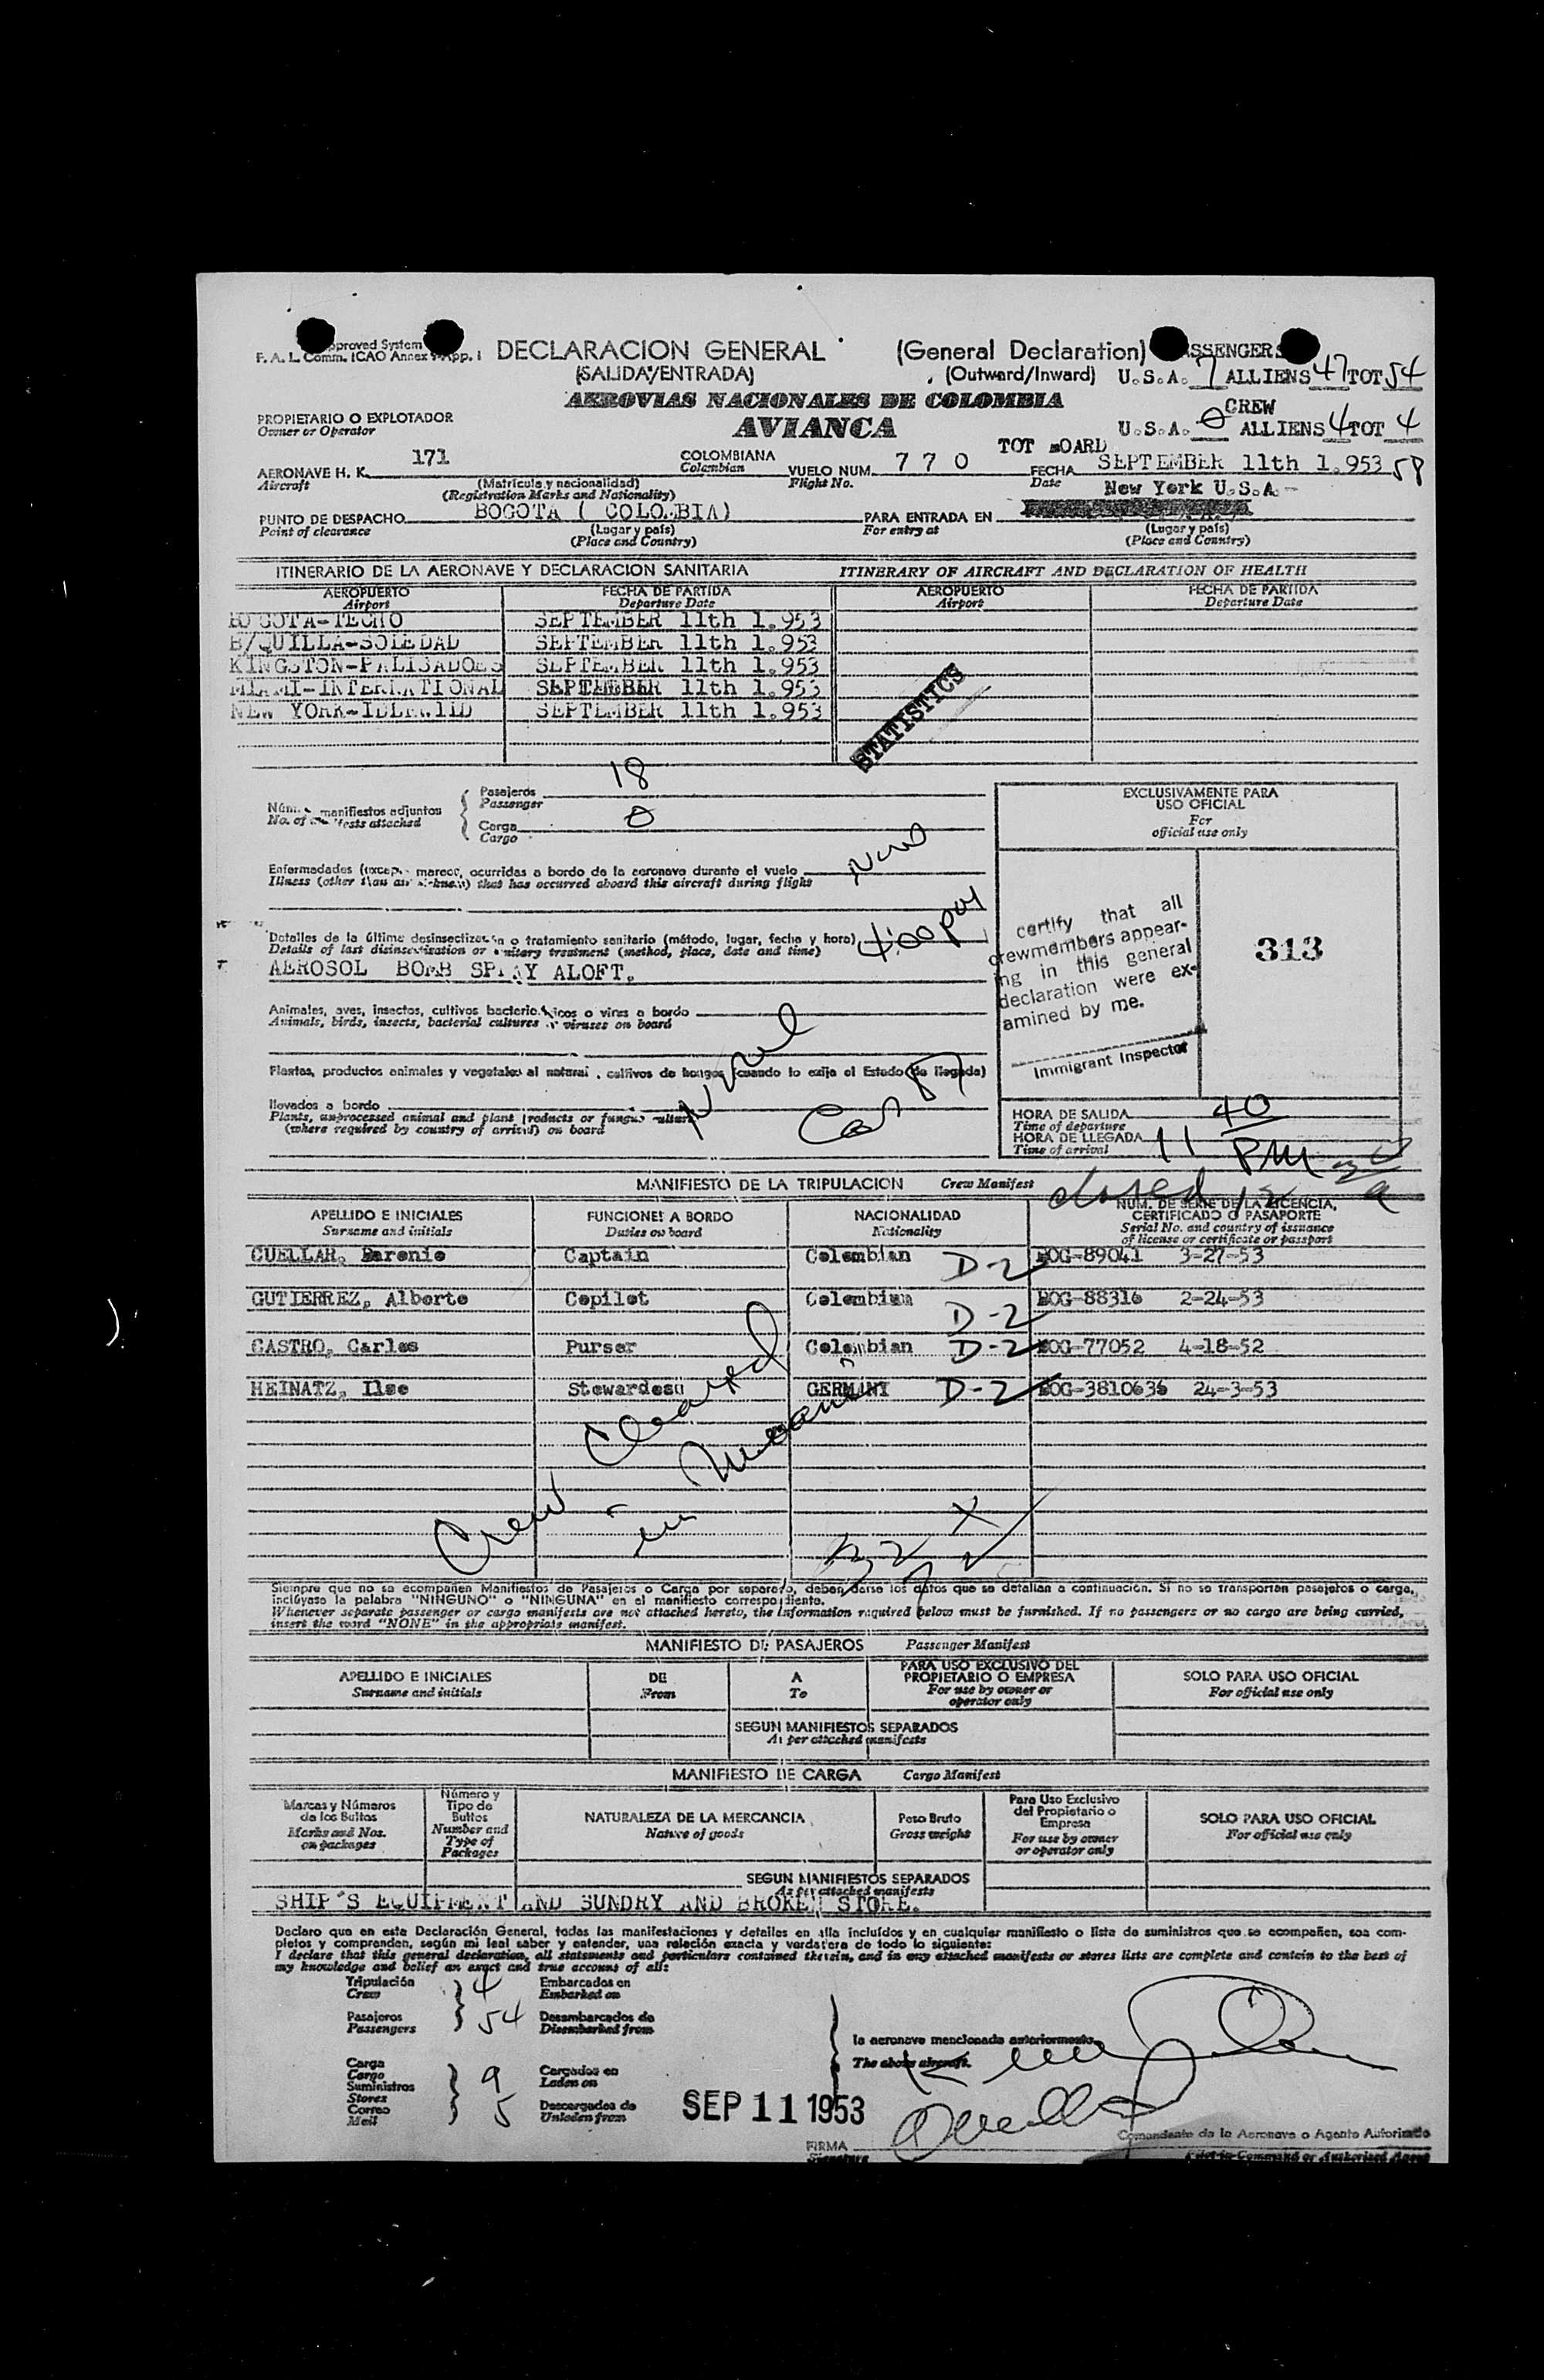 Approved System
F. A. L. Comm. ICAO Annex 9 App. I
DECLARACION GENERAL (General Declaration) PASSENGERS
(SALIDA/ENTRADA) (Outward/Inward) U.S.A. 7 ALLIENS 47 TOT 54
AEROVIAS NACIONALES DE COLOMBIA
CREW
PROPIETARIO O EXPLOTADOR
Owner or Operator
AVIANCA
U.S.A. 0 ALLIENS 4 TOT 4
TOT BOARD 58
AERONAVE H. K. 171 COLOMBIANA VUELO NUM. 770 FECHA SEPTEMBER 11th 1.953
Aircraft (Matrícula y nacionalidad) Colombian Flight No. Date
(Registration Marks and Nationality)
New York U.S.A.-
PUNTO DE DESPACHO BOGOTA ( COLOMBIA) PARA ENTRADA EN
Point of clearance (Lugar y país) For entry at (Lugar y país)
(Place and Country) (Place and Country)
ITINERARIO DE LA AERONAVE Y DECLARACION SANITARIA ITINERARY OF AIRCRAFT AND DECLARATION OF HEALTH
AEROPUERTO FECHA DE PARTIDA AEROPUERTO FECHA DE PARTIDA
Airport Departure Date Airport Departure Date
BOGOTA-TECHO SEPTEMBER 11th 1.953
B/QUILLA-SOLEDAD SEPTEMBER 11th 1.953
KINGSTON-PALISADOES SEPTEMBER 11th 1.953
MIAMI-INTERNATIONAL SEPTEMBER 11th 1.953
NEW YORK-IDLEWILD SEPTEMBER 11th 1.953
STATISTICS
Núm. manifiestos adjuntos
No. of manifests attached
Pasajeros 18
Passenger
Carga 0
Cargo
EXCLUSIVAMENTE PARA
USO OFICIAL
For
official use only
Enfermadades (excepto mareo), ocurridas a bordo de la aeronave durante el vuelo
Illness (other than air sickness) that has occurred aboard this aircraft during flight
Detalles de la última desinsectización o tratamiento sanitario (método, lugar, fecha y hora) 4:00 PM
Details of last disinsectization or sanitary treatment (method, place, date and time)
AEROSOL BOMB SPRAY ALOFT.
certify that all
crewmembers appear-
ing in this general
declaration were ex-
amined by me.
Immigrant Inspector
313
Animales, aves, insectos, cultivos bacteriológicos o virus a bordo
Animals, birds, insects, bacterial cultures or viruses on board
Plantas, productos animales y vegetales al natural, cultivos de hongos (cuando lo exija el Estado de llegada)
llevados a bordo
Plants, unprocessed animal and plant products or fungus cultures
(where required by country of arrival) on board
HORA DE SALIDA
Time of departure
HORA DE LLEGADA 11 40 PM
Time of arrival
closed 12
MANIFIESTO DE LA TRIPULACION Crew Manifest
APELLIDO E INICIALES FUNCIONES A BORDO NACIONALIDAD NUM. DE SERIE DE LA LICENCIA, CERTIFICADO O PASAPORTE
Surname and initials Duties on board Nationality Serial No. and country of issuance of license or certificate or passport
CUELLAR, Barenio Captain Colombian D-2 BOG-89041 3-27-53
GUTIERREZ, Alberto Copilot Colombian D-2 BOG-88316 2-24-53
CASTRO, Carlos Purser Colombian D-2 BOG-77052 4-18-52
HEINATZ, Ilse Stewardess GERMANY D-2 BOG-3810636 24-3-53
Crew Cleared
in Miami
Siempre que no se acompañen Manifiestos de Pasajeros o Carga por separado, deben darse los datos que se detallan a continuación. Si no se transportan pasajeros o carga,
inclúyase la palabra "NINGUNO" o "NINGUNA" en el manifiesto correspondiente.
Whenever separate passenger or cargo manifests are not attached hereto, the information required below must be furnished. If no passengers or no cargo are being carried,
insert the word "NONE" in the appropriate manifest.
MANIFIESTO DE PASAJEROS Passenger Manifest
APELLIDO E INICIALES DE A PARA USO EXCLUSIVO DEL PROPIETARIO O EMPRESA SOLO PARA USO OFICIAL
Surname and initials From To For use by owner or operator only For official use only
SEGUN MANIFIESTOS SEPARADOS
As per attached manifests
MANIFIESTO DE CARGA Cargo Manifest
Marcas y Números de los Bultos Número y Tipo de Bultos NATURALEZA DE LA MERCANCIA Peso Bruto Para Uso Exclusivo del Propietario o Empresa SOLO PARA USO OFICIAL
Marks and Nos. on packages Number and Type of Packages Nature of goods Gross weight For use by owner or operator only For official use only
SEGUN MANIFIESTOS SEPARADOS
As per attached manifests
SHIP'S EQUIPMENT AND SUNDRY AND BROKEN STORE.
Declaro que en esta Declaración General, todas las manifestaciones y detalles en ella incluídos y en cualquier manifiesto o lista de suministros que se acompañen, son com-
pletos y comprenden, según mi leal saber y entender, una relación exacta y verdadera de todo lo siguiente:
I declare that this general declaration, all statements and particulars contained therein, and in any attached manifests or stores lists are complete and contain to the best of
my knowledge and belief an exact and true account of all:
Tripulación 4 Embarcados en
Crew Embarked on
Pasajeros 54 Desembarcados de
Passengers Disembarked from
la aeronave mencionada anteriormente.
The above aircraft.
Carga 9 Cargados en
Cargo Laden on
Suministros
Stores
Correo 5 Descargados de
Mail Unladen from
SEP 11 1953
FIRMA
Signature
Comandante de la Aeronave o Agente Autorizado
Pilot in Command or Authorized Agent